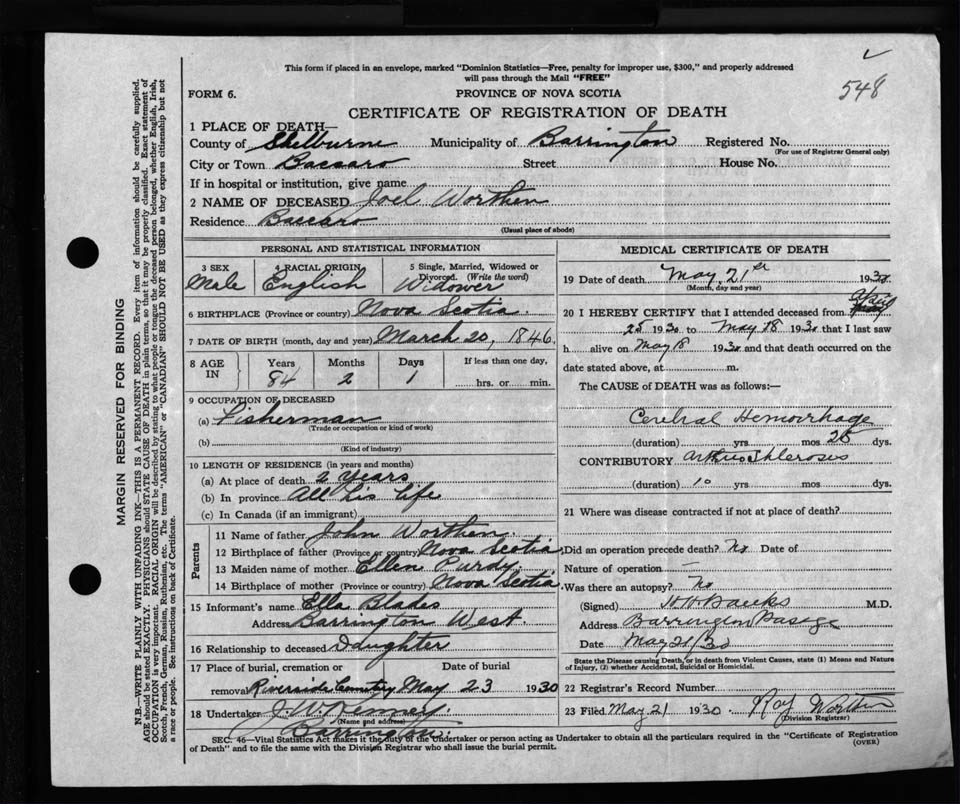 548
This form if placed in an envelope, marked "Dominion Statistics—Free, penalty for improper use, $300," and properly addressed
will pass through the Mail "FREE"
FORM 6.
PROVINCE OF NOVA SCOTIA
CERTIFICATE OF REGISTRATION OF DEATH
1 PLACE OF DEATH—
County of Shelburne Municipality of Barrington Registered No.
(For use of Registrar General only)
City or Town Baccaro Street House No.
If in hospital or institution, give name
2 NAME OF DECEASED Joel Worthen
Residence Baccaro
(Usual place of abode)
PERSONAL AND STATISTICAL INFORMATION
3 SEX 4 RACIAL ORIGIN 5 Single, Married, Widowed or Divorced. (Write the word)
Male English Widower
6 BIRTHPLACE (Province or country) Nova Scotia
7 DATE OF BIRTH (month, day and year) March 20, 1846.
8 AGE IN Years Months Days If less than one day,
84 2 1 hrs. or min.
9 OCCUPATION OF DECEASED
(a) Fisherman
(Trade or occupation or kind of work)
(b)
(Kind of industry)
10 LENGTH OF RESIDENCE (in years and months)
(a) At place of death 2 years
(b) In province All his life
(c) In Canada (if an immigrant)
Parents
11 Name of father John Worthen
12 Birthplace of father (Province or country) Nova Scotia
13 Maiden name of mother Ellen Purdy
14 Birthplace of mother (Province or country) Nova Scotia
15 Informant's name Ella Blades
Address Barrington West
16 Relationship to deceased Daughter
17 Place of burial, cremation or Date of burial
removal Riverside Cemetry May 23 1930
18 Undertaker J. W. Kenney
(Name and address)
Barrington.
MEDICAL CERTIFICATE OF DEATH
19 Date of death May 21st 1930
(Month, day and year)
20 I HEREBY CERTIFY that I attended deceased from April
25 1930 to May 18 1930 that I last saw
h alive on May 18 1930 and that death occurred on the
date stated above, at m.
The CAUSE OF DEATH was as follows:—
Cerebral Hemorrhage
(duration) yrs mos 25 dys.
CONTRIBUTORY
(duration) 10 yrs mos dys.
21 Where was disease contracted if not at place of death?
Did an operation precede death? No Date of
Nature of operation —
Was there an autopsy? No
(Signed) M.D.
Address Barrington Passage
Date May 21/30
State the Disease causing Death, or in death from Violent Causes, state (1) Means and Nature
of Injury, (2) whether Accidental, Suicidal or Homicidal.
22 Registrar's Record Number
23 Filed May 21 1930 Ray Worthen
(Division Registrar)
SEC. 46—Vital Statistics Act makes it the duty of the Undertaker or person acting as Undertaker to obtain all the particulars required in the "Certificate of Registration
of Death" and to file the same with the Division Registrar who shall issue the burial permit.
(OVER)
MARGIN RESERVED FOR BINDING
N.B.—WRITE PLAINLY WITH UNFADING INK—THIS IS A PERMANENT RECORD. Every item of information should be carefully supplied.
AGE should be stated EXACTLY. PHYSICIANS should STATE CAUSE OF DEATH in plain terms, so that it may be properly classified. Exact statement of
OCCUPATION is very important. RACIAL ORIGIN will be described by stating to what people or tongue the deceased person belonged, whether English, Irish,
Scotch, French, German, Russian, Ruthenian, etc. The terms "AMERICAN" or "CANADIAN" SHOULD NOT BE USED as they express citizenship but not
a race or people. See instructions on back of Certificate.